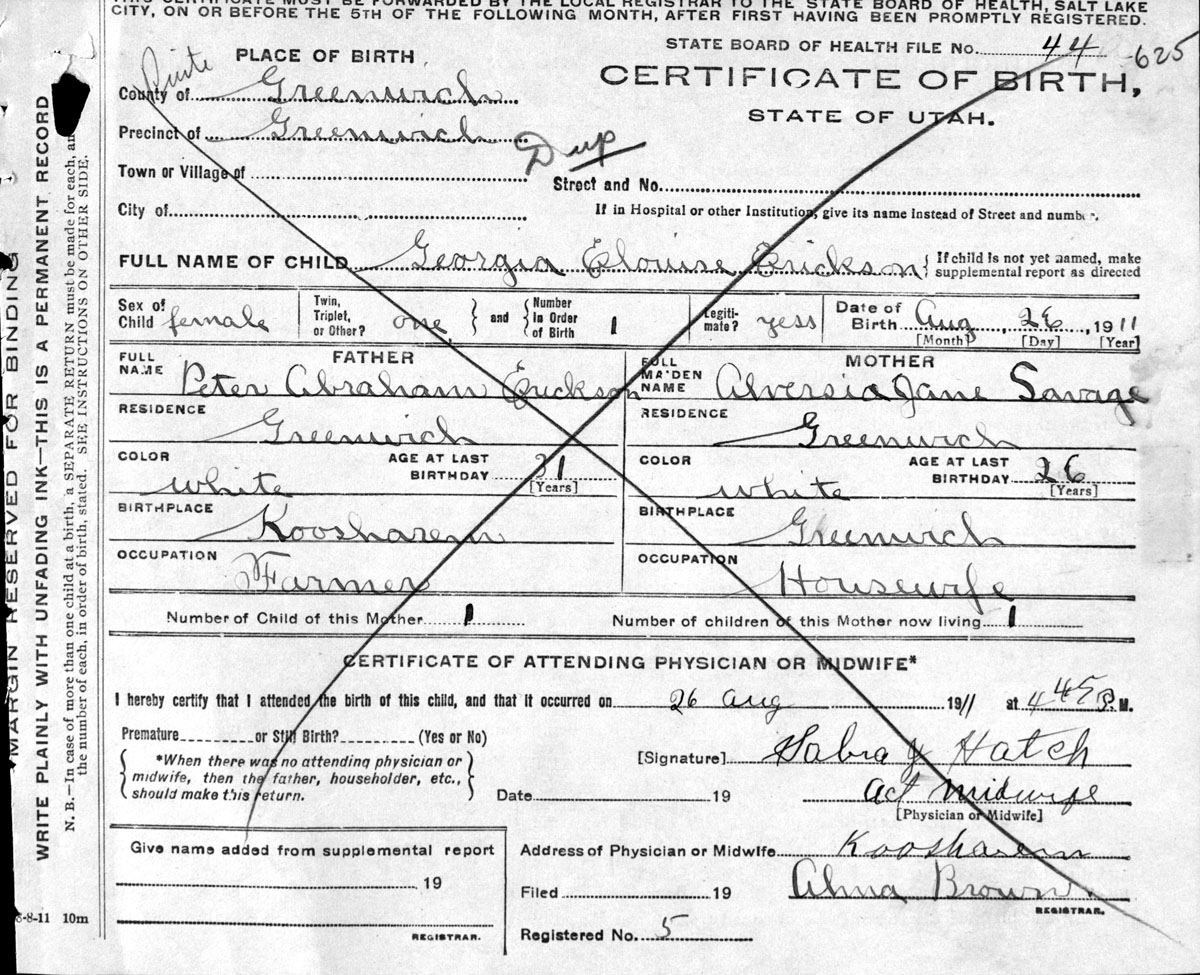 THIS CERTIFICATE MUST BE FORWARDED BY THE LOCAL REGISTRAR TO THE STATE BOARD OF HEALTH, SALT LAKE
CITY, ON OR BEFORE THE 5TH OF THE FOLLOWING MONTH, AFTER FIRST HAVING BEEN PROMPTLY REGISTERED.
STATE BOARD OF HEALTH FILE No. 44 -625
PLACE OF BIRTH
CERTIFICATE OF BIRTH,
STATE OF UTAH.
Piute
County of Greenwich
Precinct of Greenwich
Dup
Town or Village of
Street and No.
City of
If in Hospital or other Institution, give its name instead of Street and number.
FULL NAME OF CHILD Georgia Elouise Erickson { If child is not yet named, make
supplemental report as directed
Sex of Child female Twin, Triplet, or Other? one } and { Number In Order of Birth 1 Legiti-mate? yess Date of Birth Aug, 26, 1911
[Month] [Day] [Year]
FATHER
MOTHER
FULL NAME Peter Abraham Erickson
FULL MAIDEN NAME Alversia Jane Savage
RESIDENCE
RESIDENCE
Greenwich
Greenwich
COLOR AGE AT LAST BIRTHDAY 31
COLOR AGE AT LAST BIRTHDAY 26
white [Years]
white [Years]
BIRTHPLACE Koosharem
BIRTHPLACE Greenwich
OCCUPATION Farmer
OCCUPATION Housewife
Number of Child of this Mother 1 Number of children of this Mother now living 1
CERTIFICATE OF ATTENDING PHYSICIAN OR MIDWIFE*
I hereby certify that I attended the birth of this child, and that it occurred on 26 Aug 1911 at 4 45 P. M.
Premature or Still Birth? (Yes or No)
{ *When there was no attending physician or
midwife, then the father, householder, etc.,
should make this return. }
[Signature] Sabra J Hatch
Date 19 Act midwife
[Physician or Midwife]
Give name added from supplemental report
19
REGISTRAR.
Address of Physician or Midwife Koosharem
Filed 19 Alma Brown
REGISTRAR.
Registered No. 5
8-8-11 10m
MARGIN RESERVED FOR BINDING
WRITE PLAINLY WITH UNFADING INK—THIS IS A PERMANENT RECORD
N. B.—In case of more than one child at a birth, a SEPARATE RETURN must be made for each, and
the number of each, in order of birth, stated. SEE INSTRUCTIONS ON OTHER SIDE.